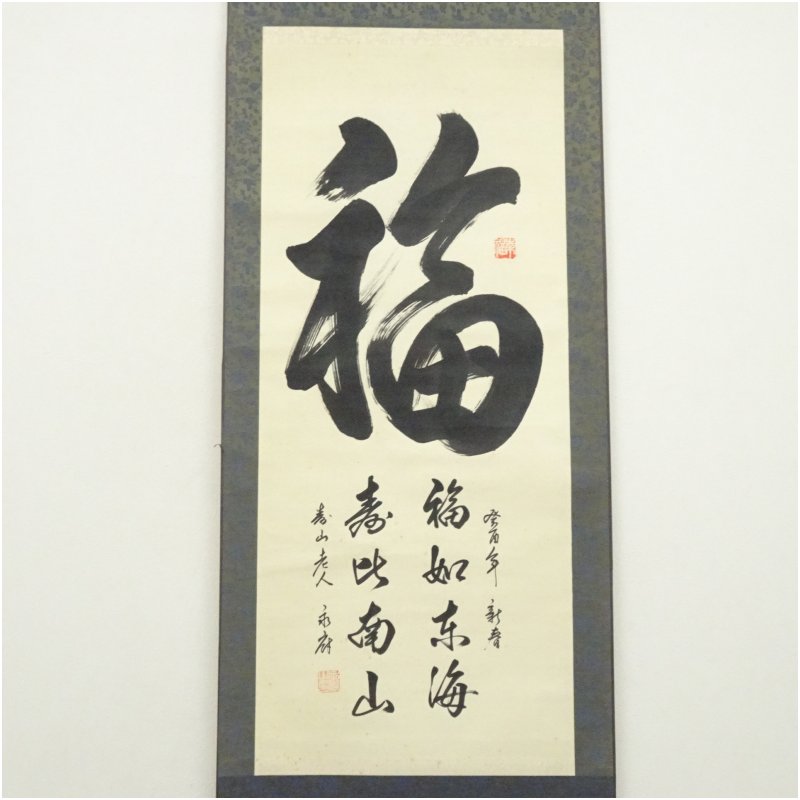 福
癸酉年 新春
福如东海
寿比南山
寿山老人